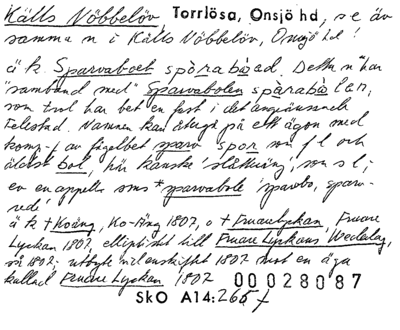 Källs Nöbbelöv Torrlösa, Onsjö hd, se äv
samma n i Källs Nöbbelöv, Onsjö hd!
ä k. Sparvaboet spòrabòad. Detta n har
"samband med" Sparvabolen spårabålan,
som trol har bet en fest i det angränsande
Felestad. Namnen kan återgå på ett ägon med
komp-f av fågelbet sparv spor som f l och
äldst bol, här kanske 'slåttning', som s l;
ev en appell sms *sparvabole 'sparvbo, sparv-
rede'
ä k +Koäng, Ko-Äng 1807, o +Fruarlyckan, Fruare
Lyckan 1807, elliptiskt till Fruare Lyckans Wederlag,
så 1807; utbyte vid enskiftet 1807 mot en äga
kallad Fruare Lyckan 1807 00028087
SkO A14:266